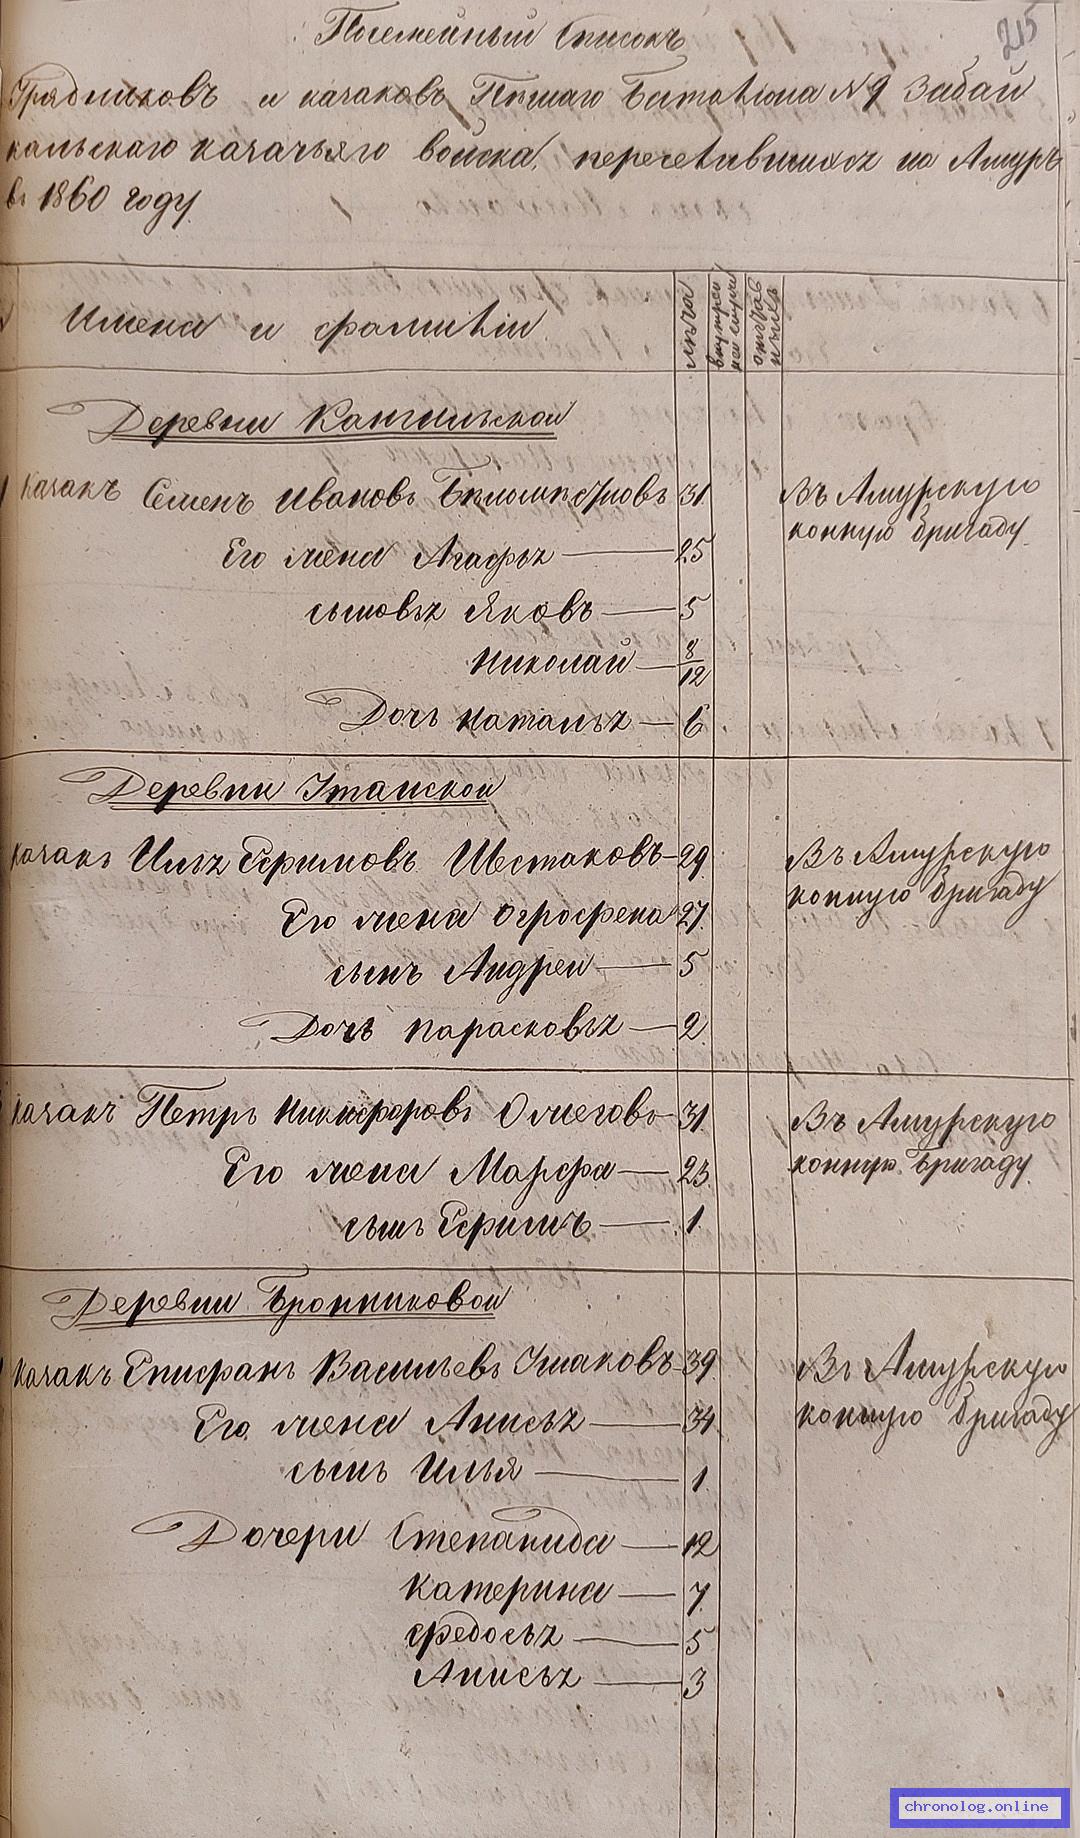 Посемейный Списокъ
215
Урядниковъ и казаковъ Пѣшаго Баталiона № 9 Забай
кальскаго казачьяго войска, переселившихся на Амуръ
въ 1860 году
Имена и фамилiи
лѣта
внутрен
ней служ
отстав
ныхъ
Деревни Кангильской
1 казакъ Семенъ Ивановъ 31
Въ Амурскую
конную бригаду.
Его жена Агафья 25
сыновья Яковъ 5
Николай 8/12
Дочь Наталья 6
Деревни Утанской
казакъ Илья Ефимовъ Шестаковъ 29
Въ Амурскую
конную бригаду
Его жена Огрофена 27
сынъ Андреи 5
Дочь Парасковья 2
казакъ Петръ Никифоровъ Ожеговъ 31
Въ Амурскую
конную бригаду
Его жена Марфа 23
сынъ Ефимъ 1
Деревни Бронниковой
казакъ Епифанъ Васильевъ Ушаковъ 39
Въ Амурскую
конную бригаду
Его жена Анисья 34
сынъ Илья 1
Дочери Степанида 12
Катерина 7
Федосья 5
Анисья 3
chronolog.online